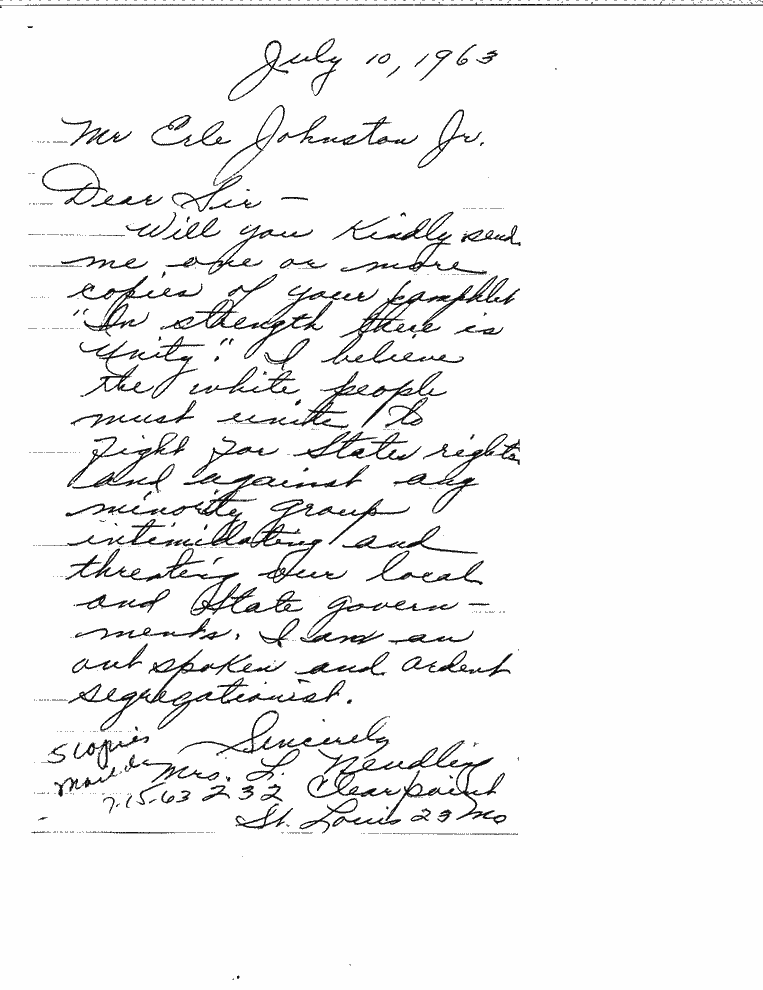 July 10, 1963
Mr Erle Johnston Jr.
Dear Sir —
Will you Kindly send
me one or more
copies of your pamphlet
"In strength there is
Unity." I believe
the white people
must unite to
fight for States rights
and against any
minority group
intimidating and
threating our local
and State govern-
ments. I am an
out spoken and ardent
segregationist.
Sincerely
5 copies
mailed
Mrs. L. Neudling
7-15-63 232 Clearpoint
St. Louis 23 Mo